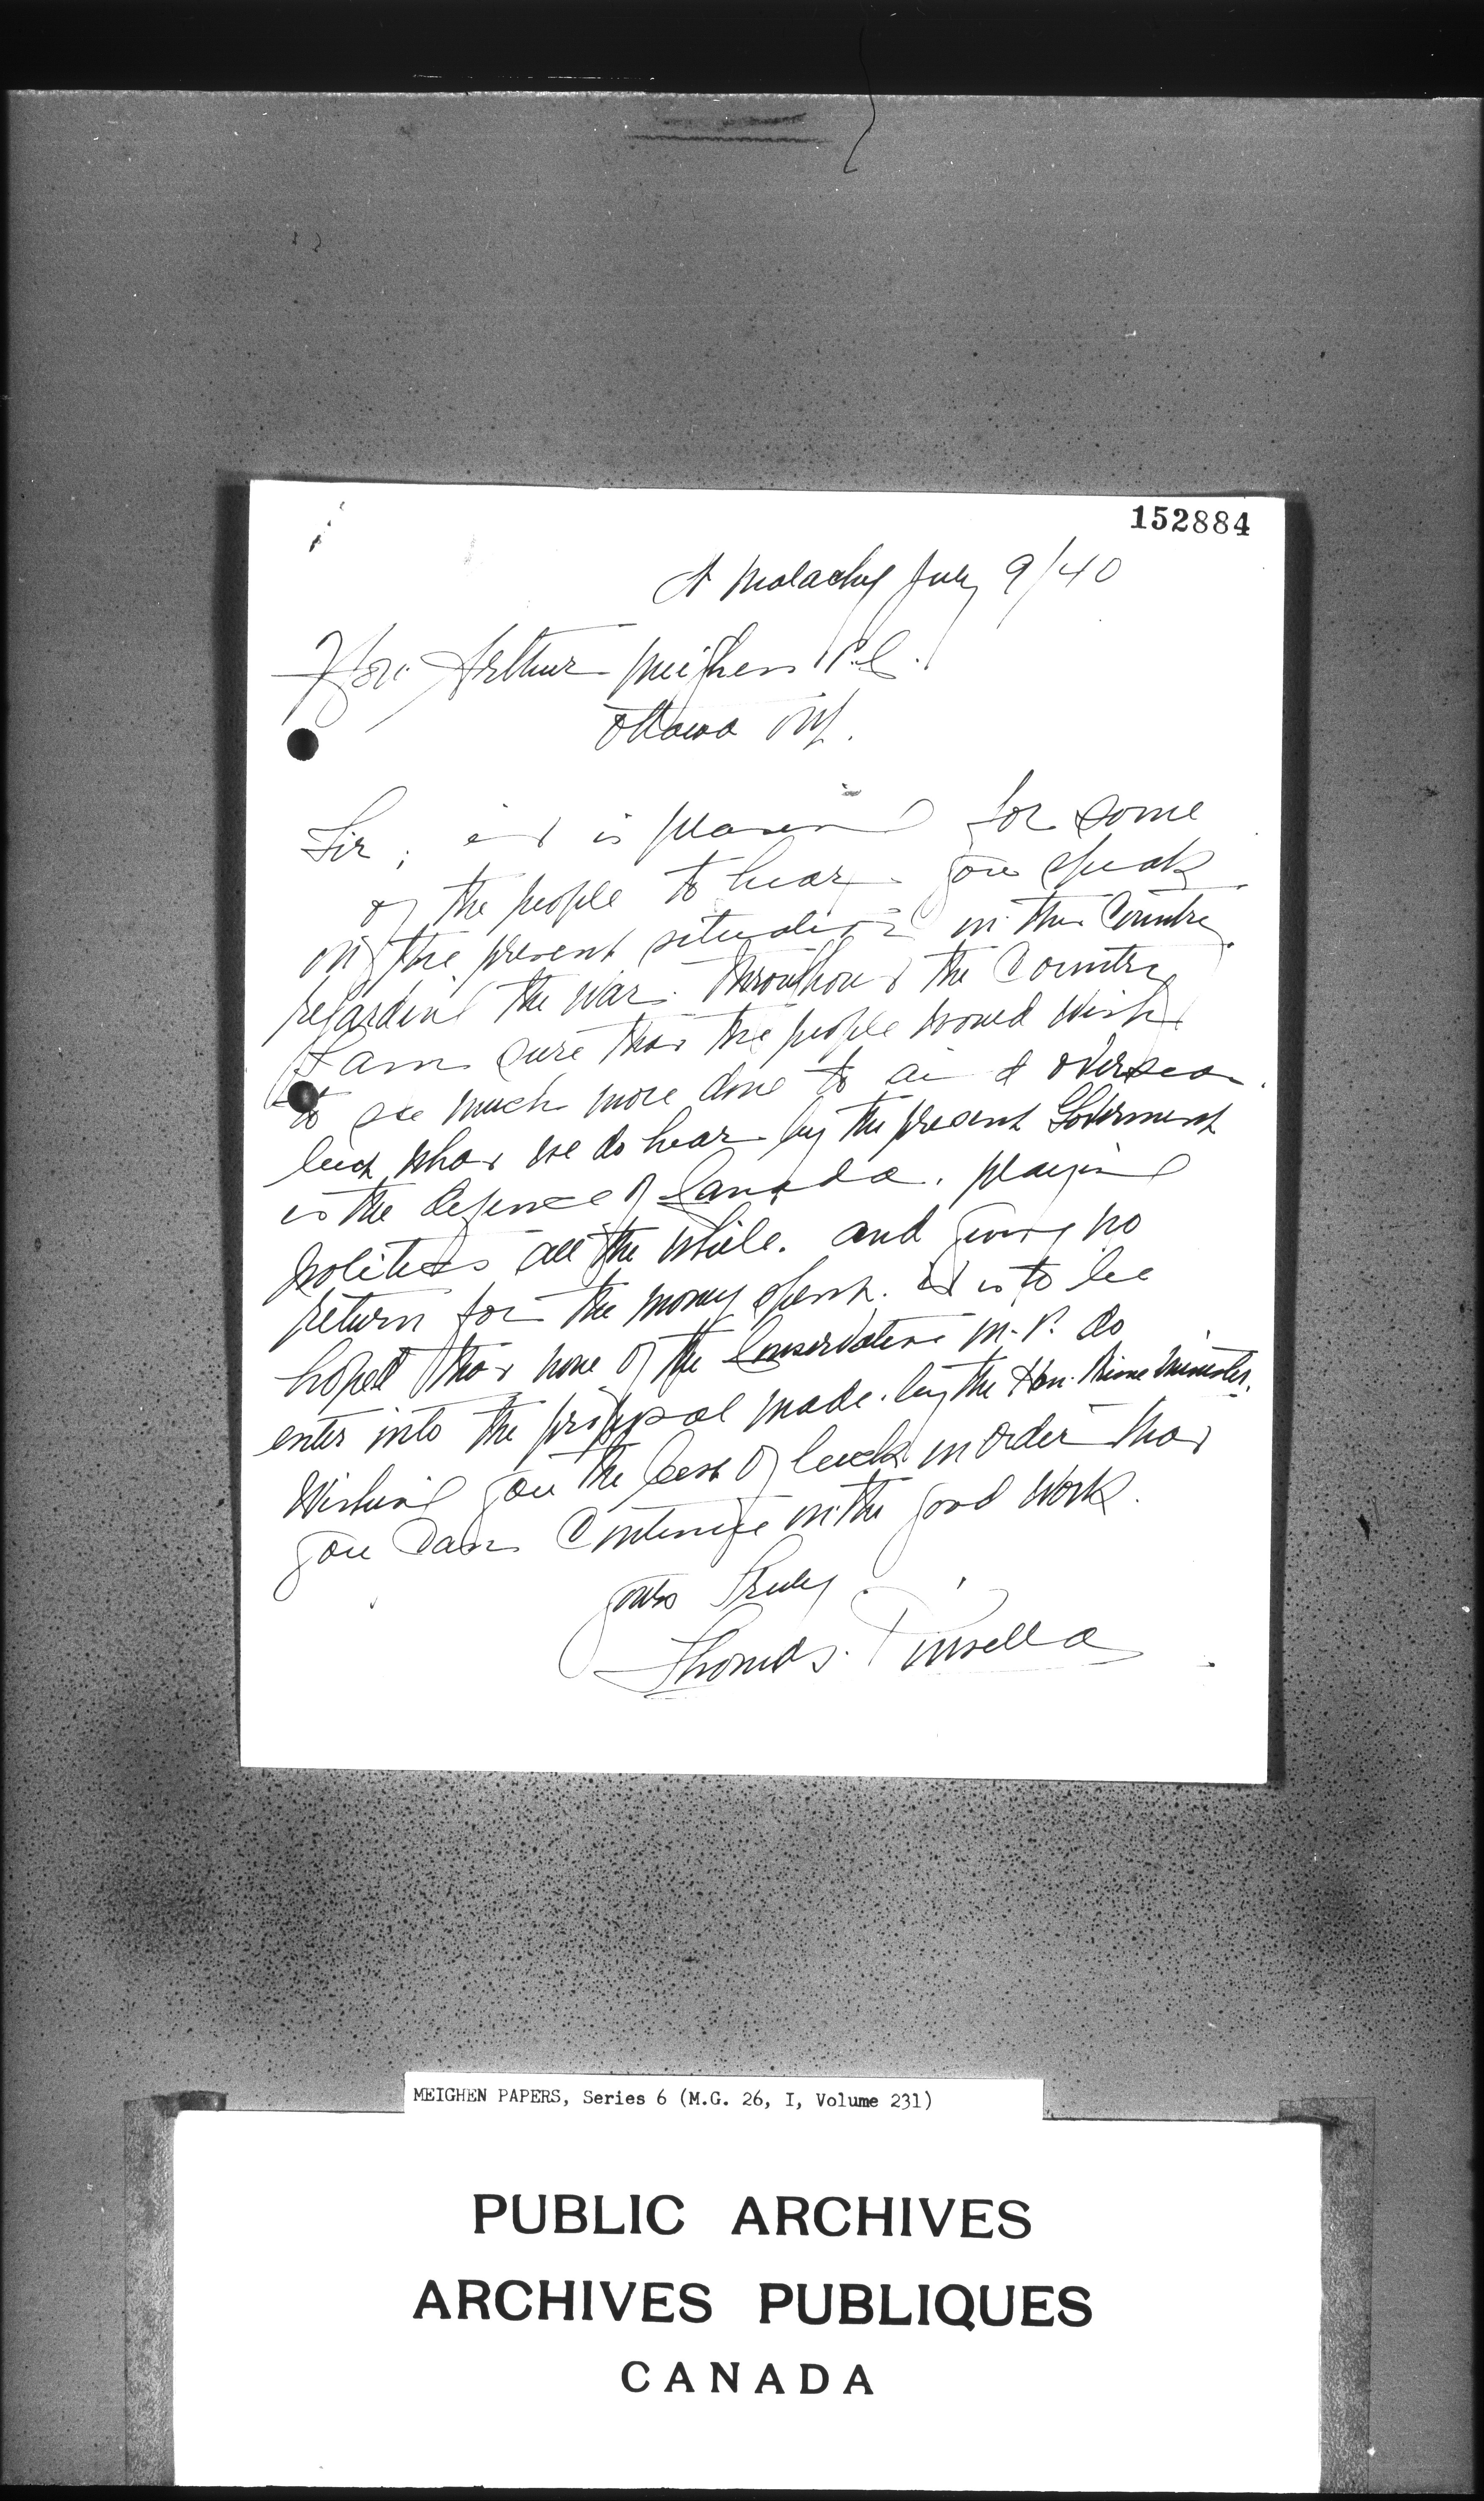 152884
St Malachy July 9/40
Hon. Arthur Meighen P.C.
Ottawa Ont.
Sir; it is pleasing for some
of the people to hear you speak
on the present situation in this Country
regarding the war. Throughout the Country
I am sure that the people would wish
to see much more done to aid overseas.
but what we do hear by the present Goverment
is the defence of Canada. playing
politics all the while. and giving no
return for the money spent. it is to be
hoped that none of the Conservative M.P. do
enter into the proposal made by the Hon. Prime Minister.
Wishing you the best of luck in order that
you can Continue in the good work.
yours truly
Thomas
MEIGHEN PAPERS, Series 6 (M.G. 26, I, Volume 231)
PUBLIC ARCHIVES
ARCHIVES PUBLIQUES
CANADA